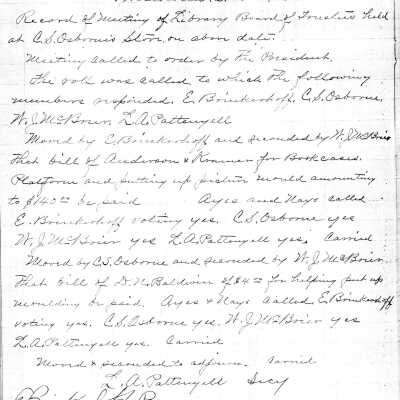 Record of Meeting of Library Board of Trustees held
at C.S. Osborne's Store on above date.
Meeting called to order by the President.
The roll was called to which the following
members responded. E. Brinkerhoff, C.S. Osborne,
W.J. McBrier, L.A. Pattengell
Moved by E. Brinkerhoff and seconded by W.J. McBrier
that bill of Anderson & Krommer for Bookcases.
Platform and putting up picture mould amounting
to be paid Ayes and Nays called
E. Brinkerhoff voting yes. C.S. Osborne yes
W.J. McBrier yes L.A. Pattengell yes. Carried
Moved by C.S. Osborne and seconded by W.J. McBrier
that bill of D.N. Baldwin of $4.00 for helping put up
moulding be paid. Ayes & Nays called E. Brinkerhoff
voting yes. C.S. Osborne yes. W.J. McBrier yes
L.A. Pattengell yes. Carried
Moved & seconded to adjourn. Carried
L.A. Pattengell Secy